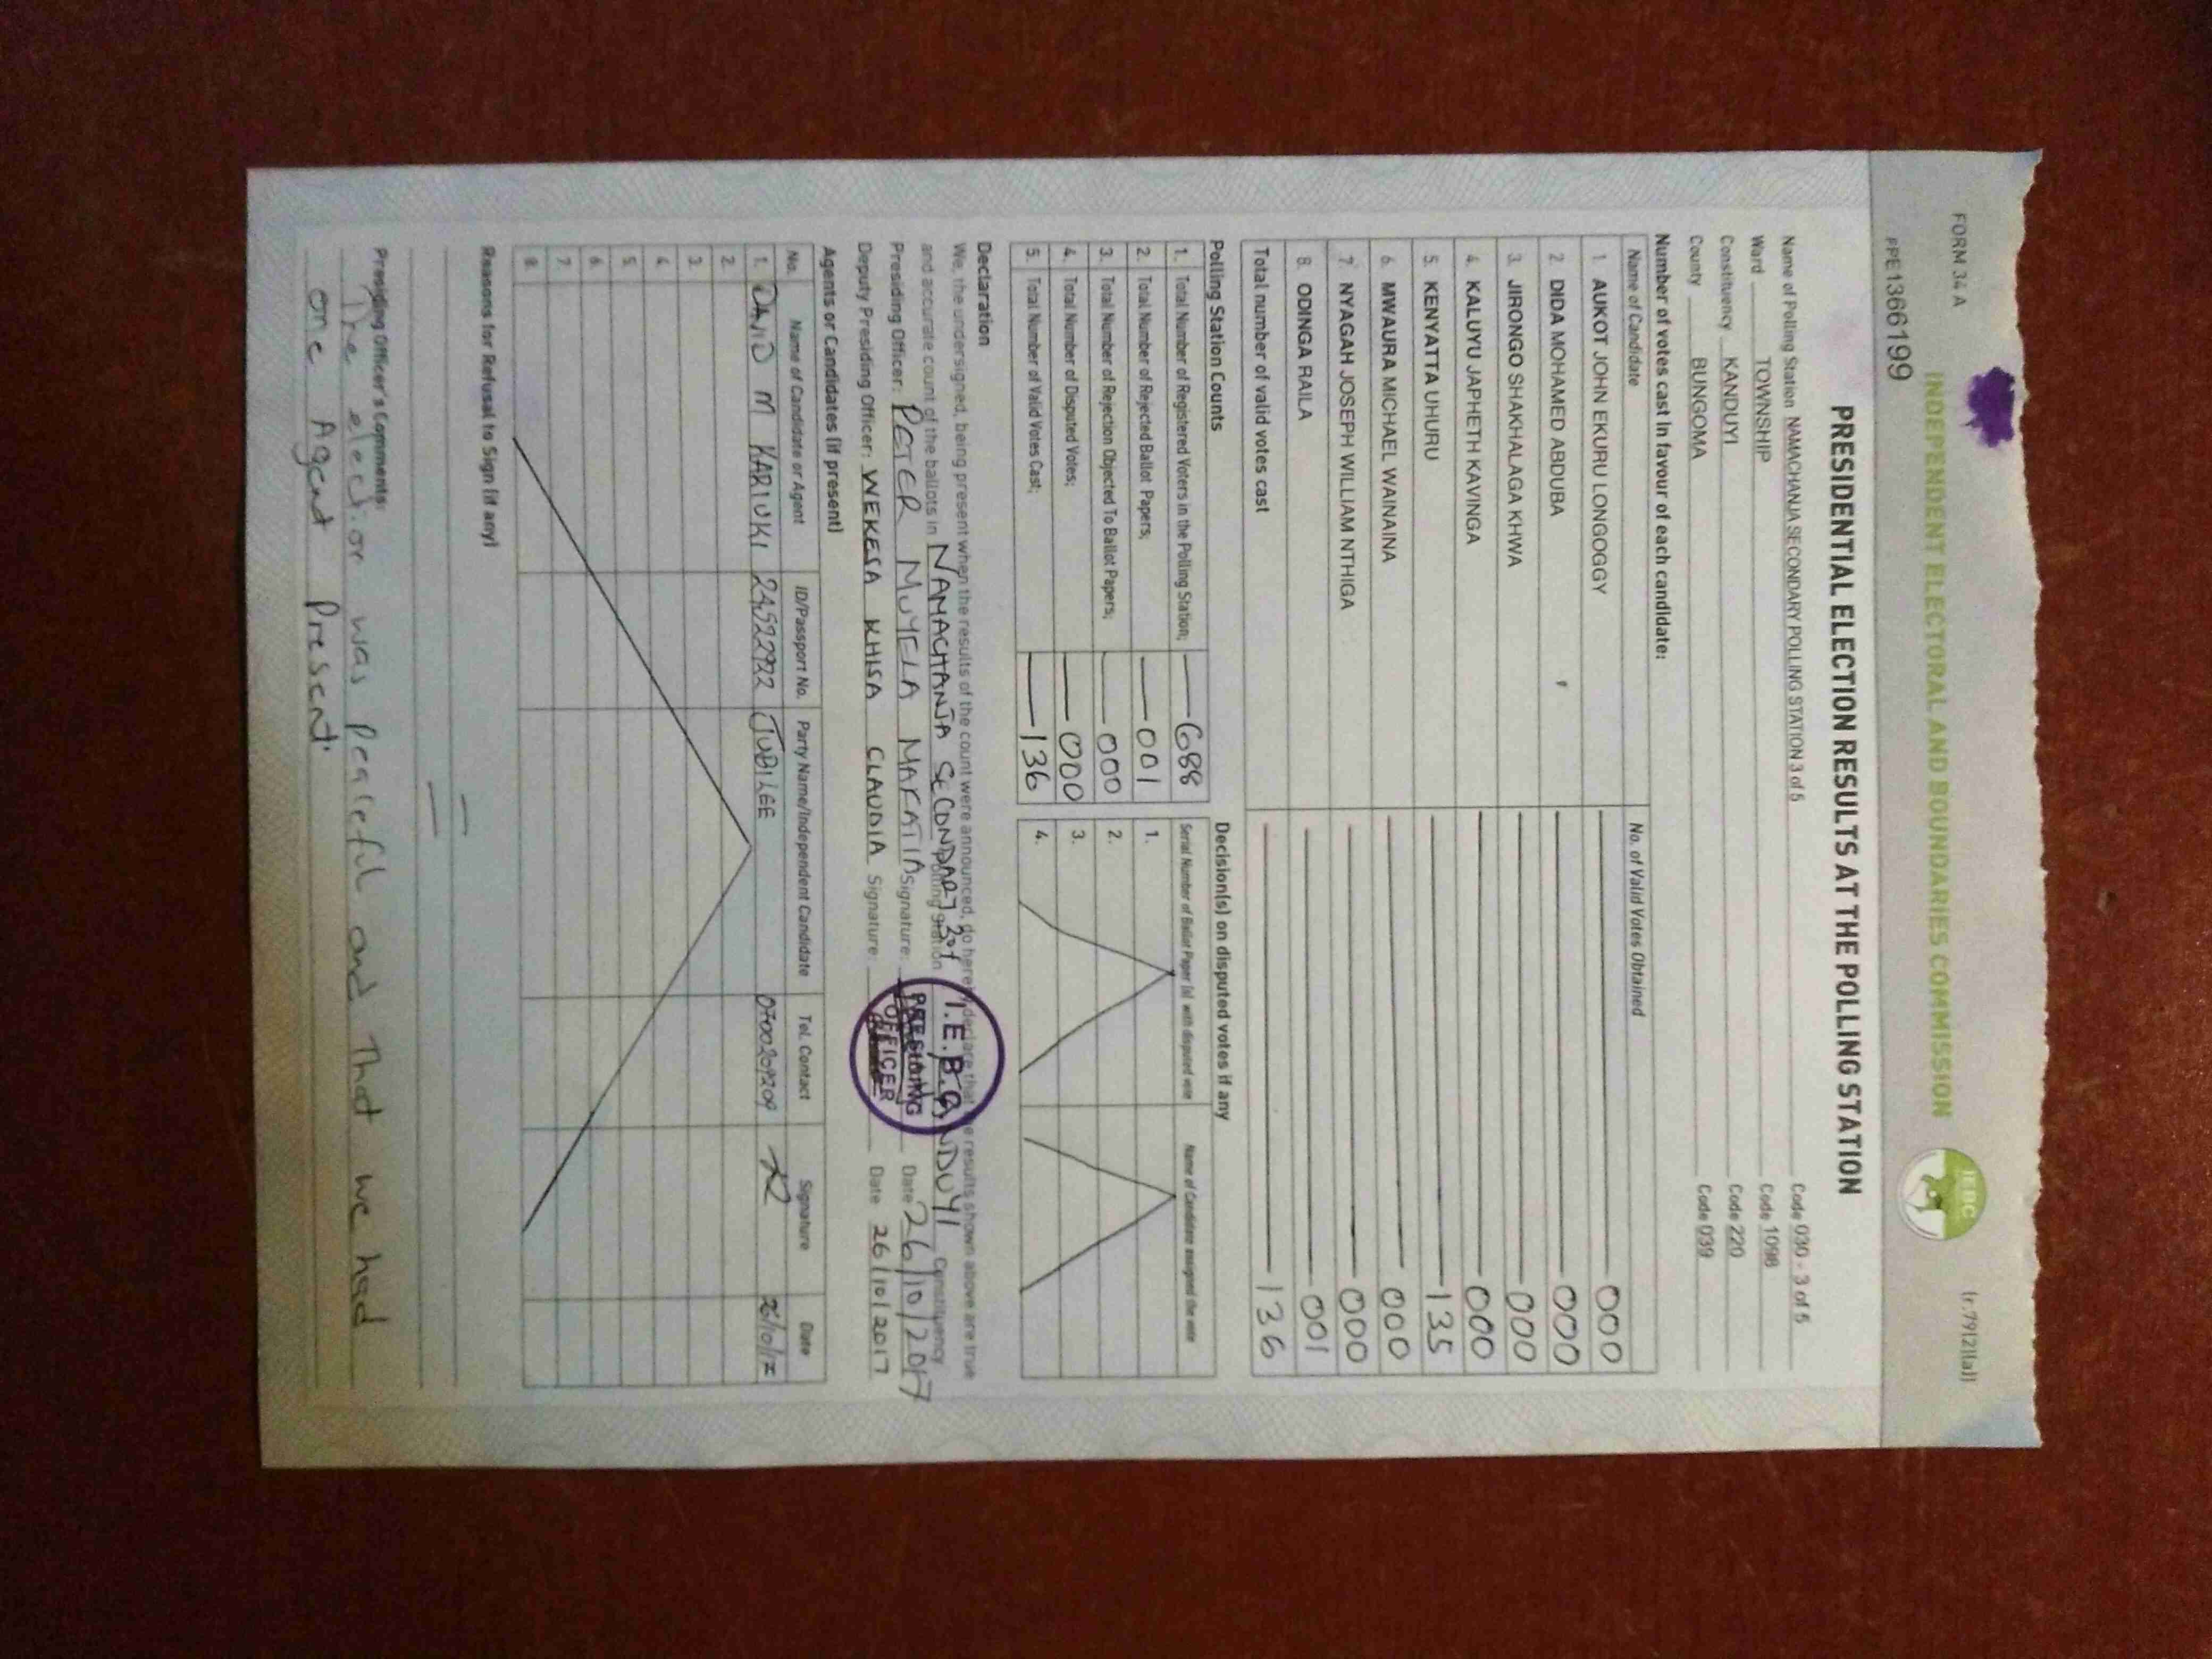 FORM 34 A
(r.79(2)(a))
INDEPENDENT ELECTORAL AND BOUNDARIES COMMISSION
IEBC
PPE1366199
PRESIDENTIAL ELECTION RESULTS AT THE POLLING STATION
Name of Polling Station NAMACHANJA SECONDARY POLLING STATION 3 of 5 Code 030 - 3 of 5
Ward TOWNSHIP Code 1098
Constituency KANDUYI Code 220
County BUNGOMA Code 039
Number of votes cast in favour of each candidate:
Name of Candidate No. of Valid Votes Obtained
1. AUKOT JOHN EKURU LONGOGGY 000
2. DIDA MOHAMED ABDUBA 000
3. JIRONGO SHAKHALAGA KHWA 000
4. KALUYU JAPHETH KAVINGA 000
5. KENYATTA UHURU 135
6. MWAURA MICHAEL WAINAINA 000
7. NYAGAH JOSEPH WILLIAM NTHIGA 000
8. ODINGA RAILA 001
Total number of valid votes cast 136
Polling Station Counts
1. Total Number of Registered Voters in the Polling Station; 688
2. Total Number of Rejected Ballot Papers; 001
3. Total Number of Rejection Objected To Ballot Papers; 000
4. Total Number of Disputed Votes; 000
5. Total Number of Valid Votes Cast; 136
Decision(s) on disputed votes if any
Serial Number of Ballot Paper (s) with disputed vote Name of Candidate assigned the vote
1.
2.
3.
4.
Declaration
We, the undersigned, being present when the results of the count were announced, do hereby declare that the results shown above are true
and accurate count of the ballots in NAMACHANJA SECONDARY polling station KANDUYI Constituency
Presiding Officer: PETER MUYELA MAFATIA Signature: Date 26/10/2017
Deputy Presiding Officer: WEKESA KHISA CLAUDIA Signature: Date 26/10/2017
I.E.B.C
PRESIDING
OFFICER
Agents or Candidates (if present)
No. Name of Candidate or Agent ID/Passport No. Party Name/Independent Candidate Tel. Contact Signature Date
1. DAVID M KARIUKI 24522922 JUBILEE 0700209209 26/10/17
2.
3.
4.
5.
6.
7.
8.
Reasons for Refusal to Sign (if any)
Presiding Officer's Comments:
The election was peaceful and that we had
one Agent present.